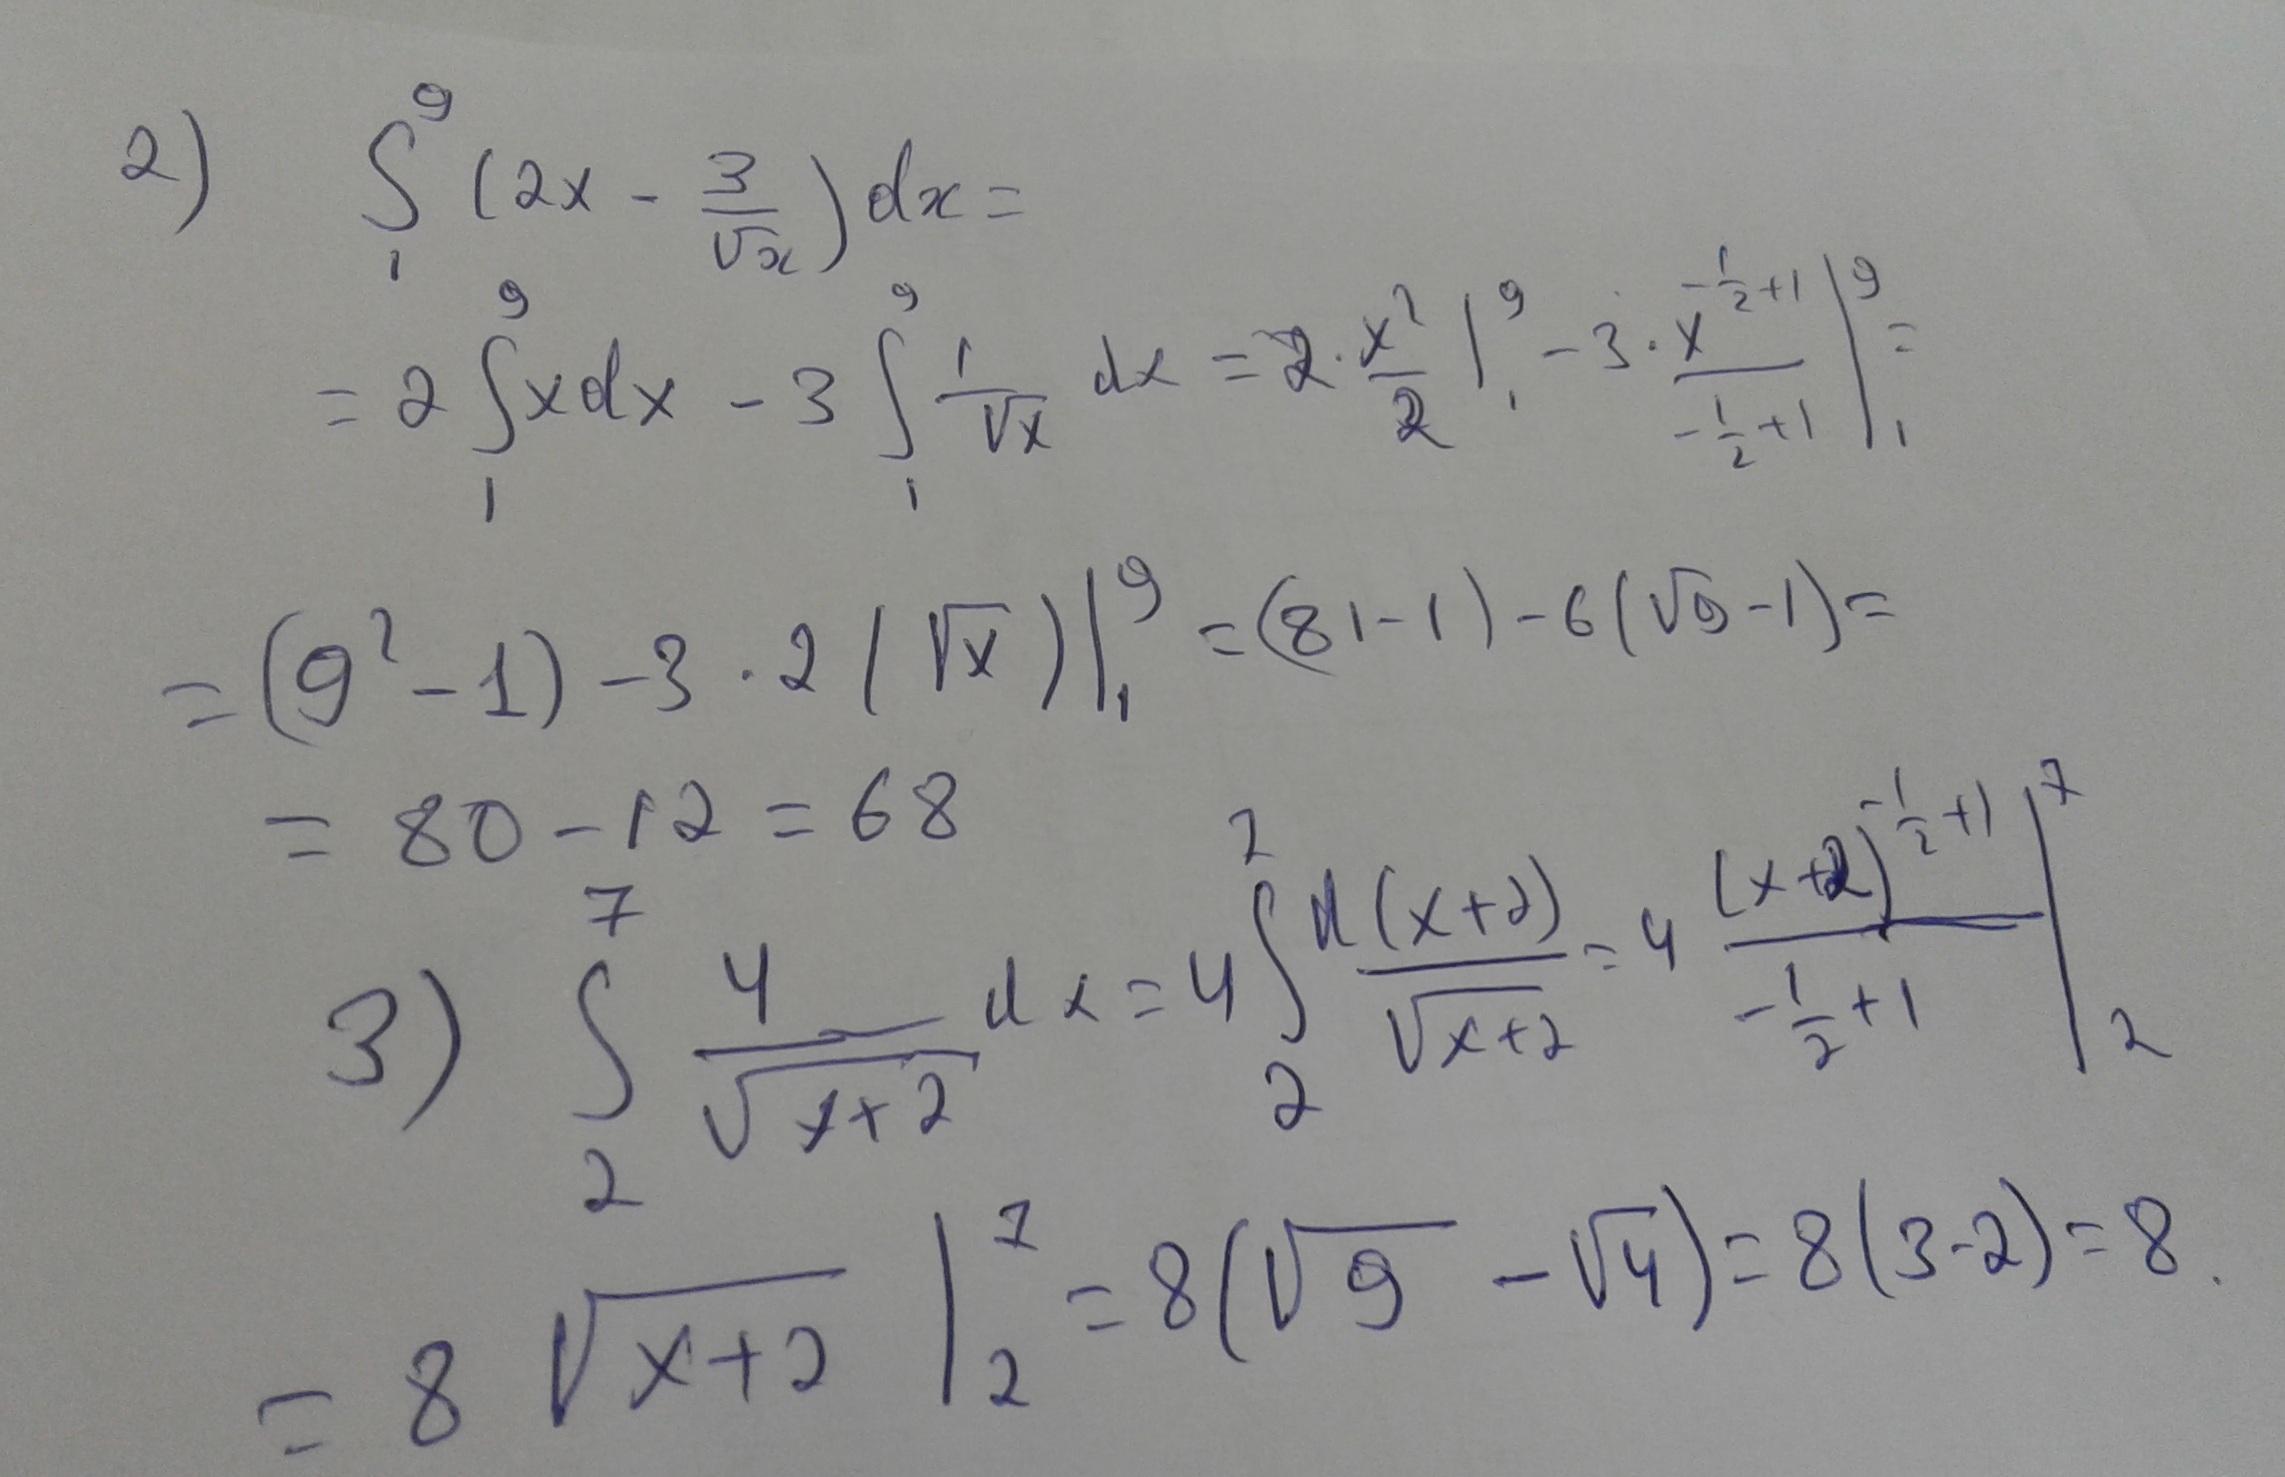 2) ∫₁⁹ (2x - 3/√x) dx =
= 2 ∫₁⁹ x dx - 3 ∫₁⁹ 1/√x dx = 2 · x²/2 |₁⁹ - 3 · x^(-1/2+1)/(-1/2+1) |₁⁹ =
= (9² - 1) - 3 · 2 (√x) |₁⁹ = (81 - 1) - 6(√9 - 1) =
= 80 - 12 = 68
3) ∫₂⁷ 4/√(x+2) dx = 4 ∫₂⁷ d(x+2)/√(x+2) = 4 (x+2)^(-1/2+1)/(-1/2+1) |₂⁷
= 8 √(x+2) |₂⁷ = 8(√9 - √4) = 8(3-2) = 8.